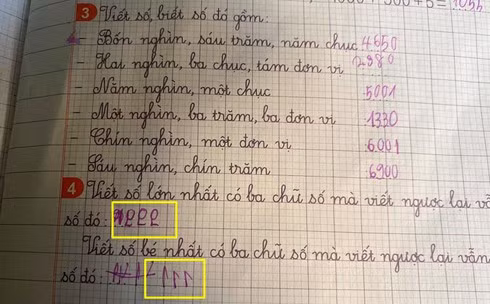 3 Viết số, biết số đó gồm:
- Bốn nghìn, sáu trăm, năm chục 4650
- Hai nghìn, ba chục, tám đơn vị 2980
- Năm nghìn, một chục 5001
- Một nghìn, ba trăm, ba đơn vị 1330
- Chín nghìn, một đơn vị 6001
- Sáu nghìn, chín trăm 6900
4 Viết số lớn nhất có ba chữ số mà viết ngược lại vẫ
số đó: 999
Viết số bé nhất có ba chữ số mà viết ngược lại vẫn
số đó: 111